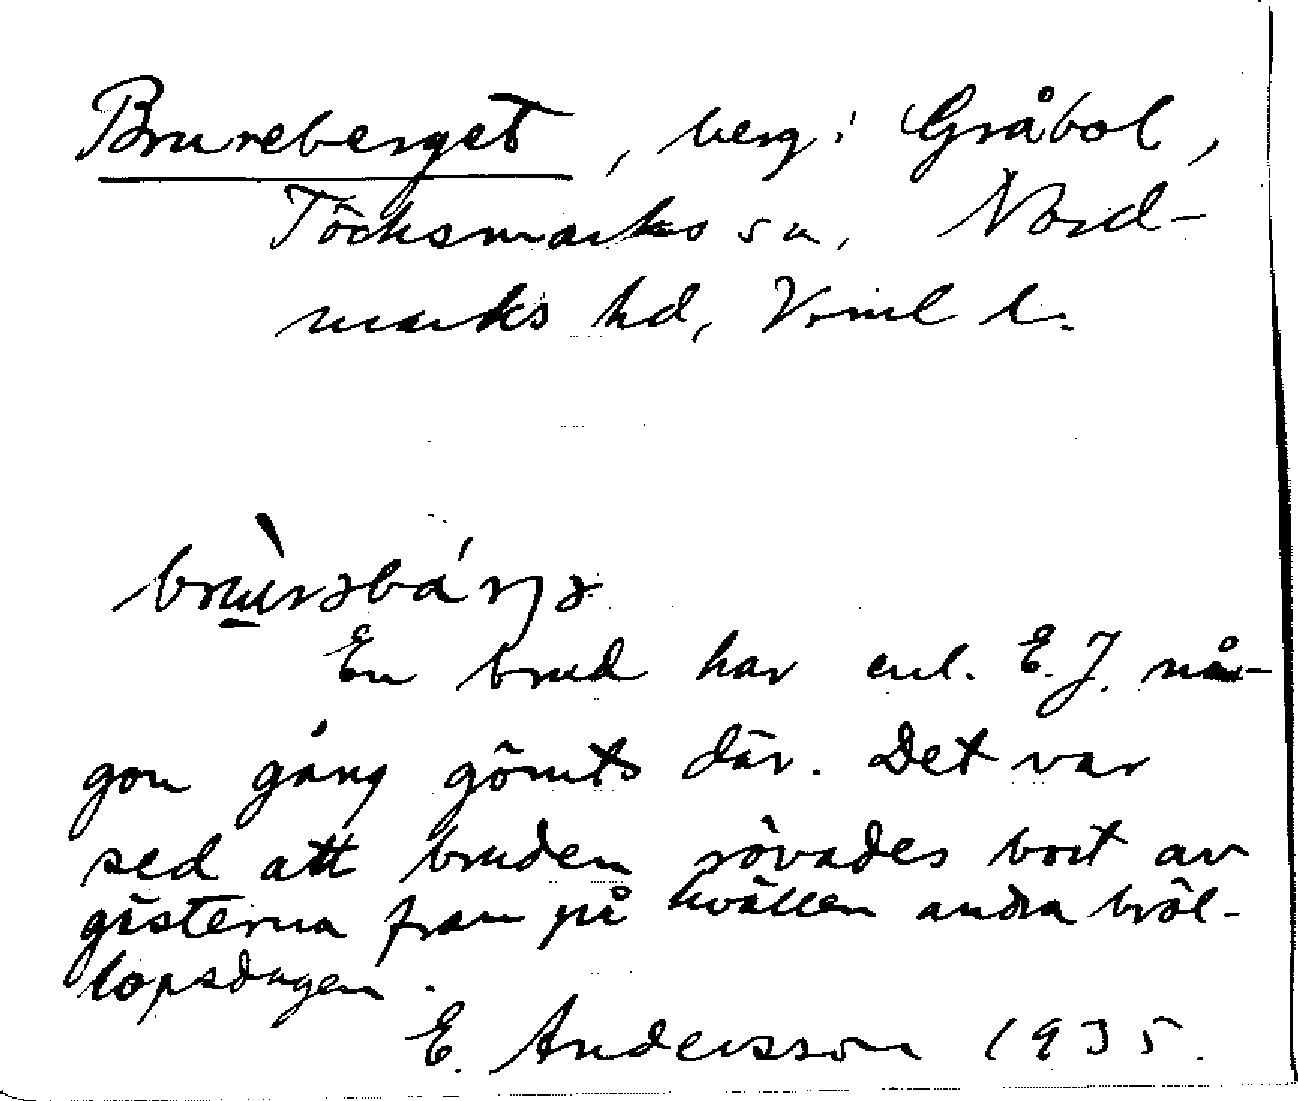 Brureberget, berg i Gråbol,
Töcksmarks sn, Nord-
marks hd, Vrml l.
En brud har enl. E. J. nå-
gon gång gömts där. Det var
sed att bruden rövades bort av
gästerna fram på kvällen andra bröl-
lopsdagen.
E. Andersson 1935.